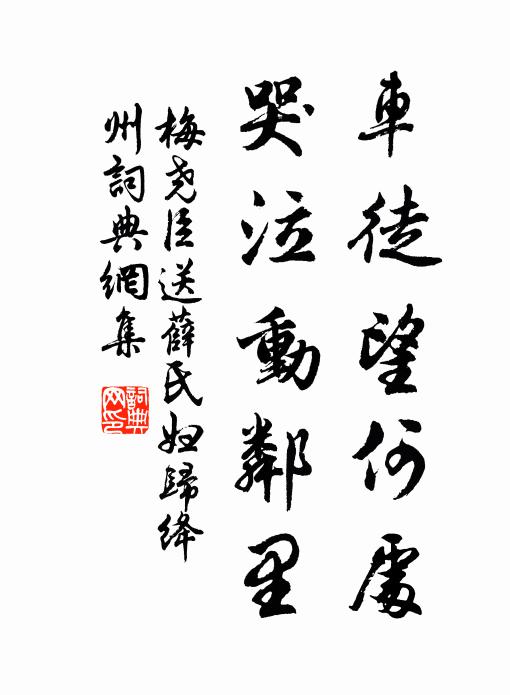 車徒望何處
哭泣動鄰里
梅堯臣送薛氏婦歸绛
州詞典網集
詞典
网印